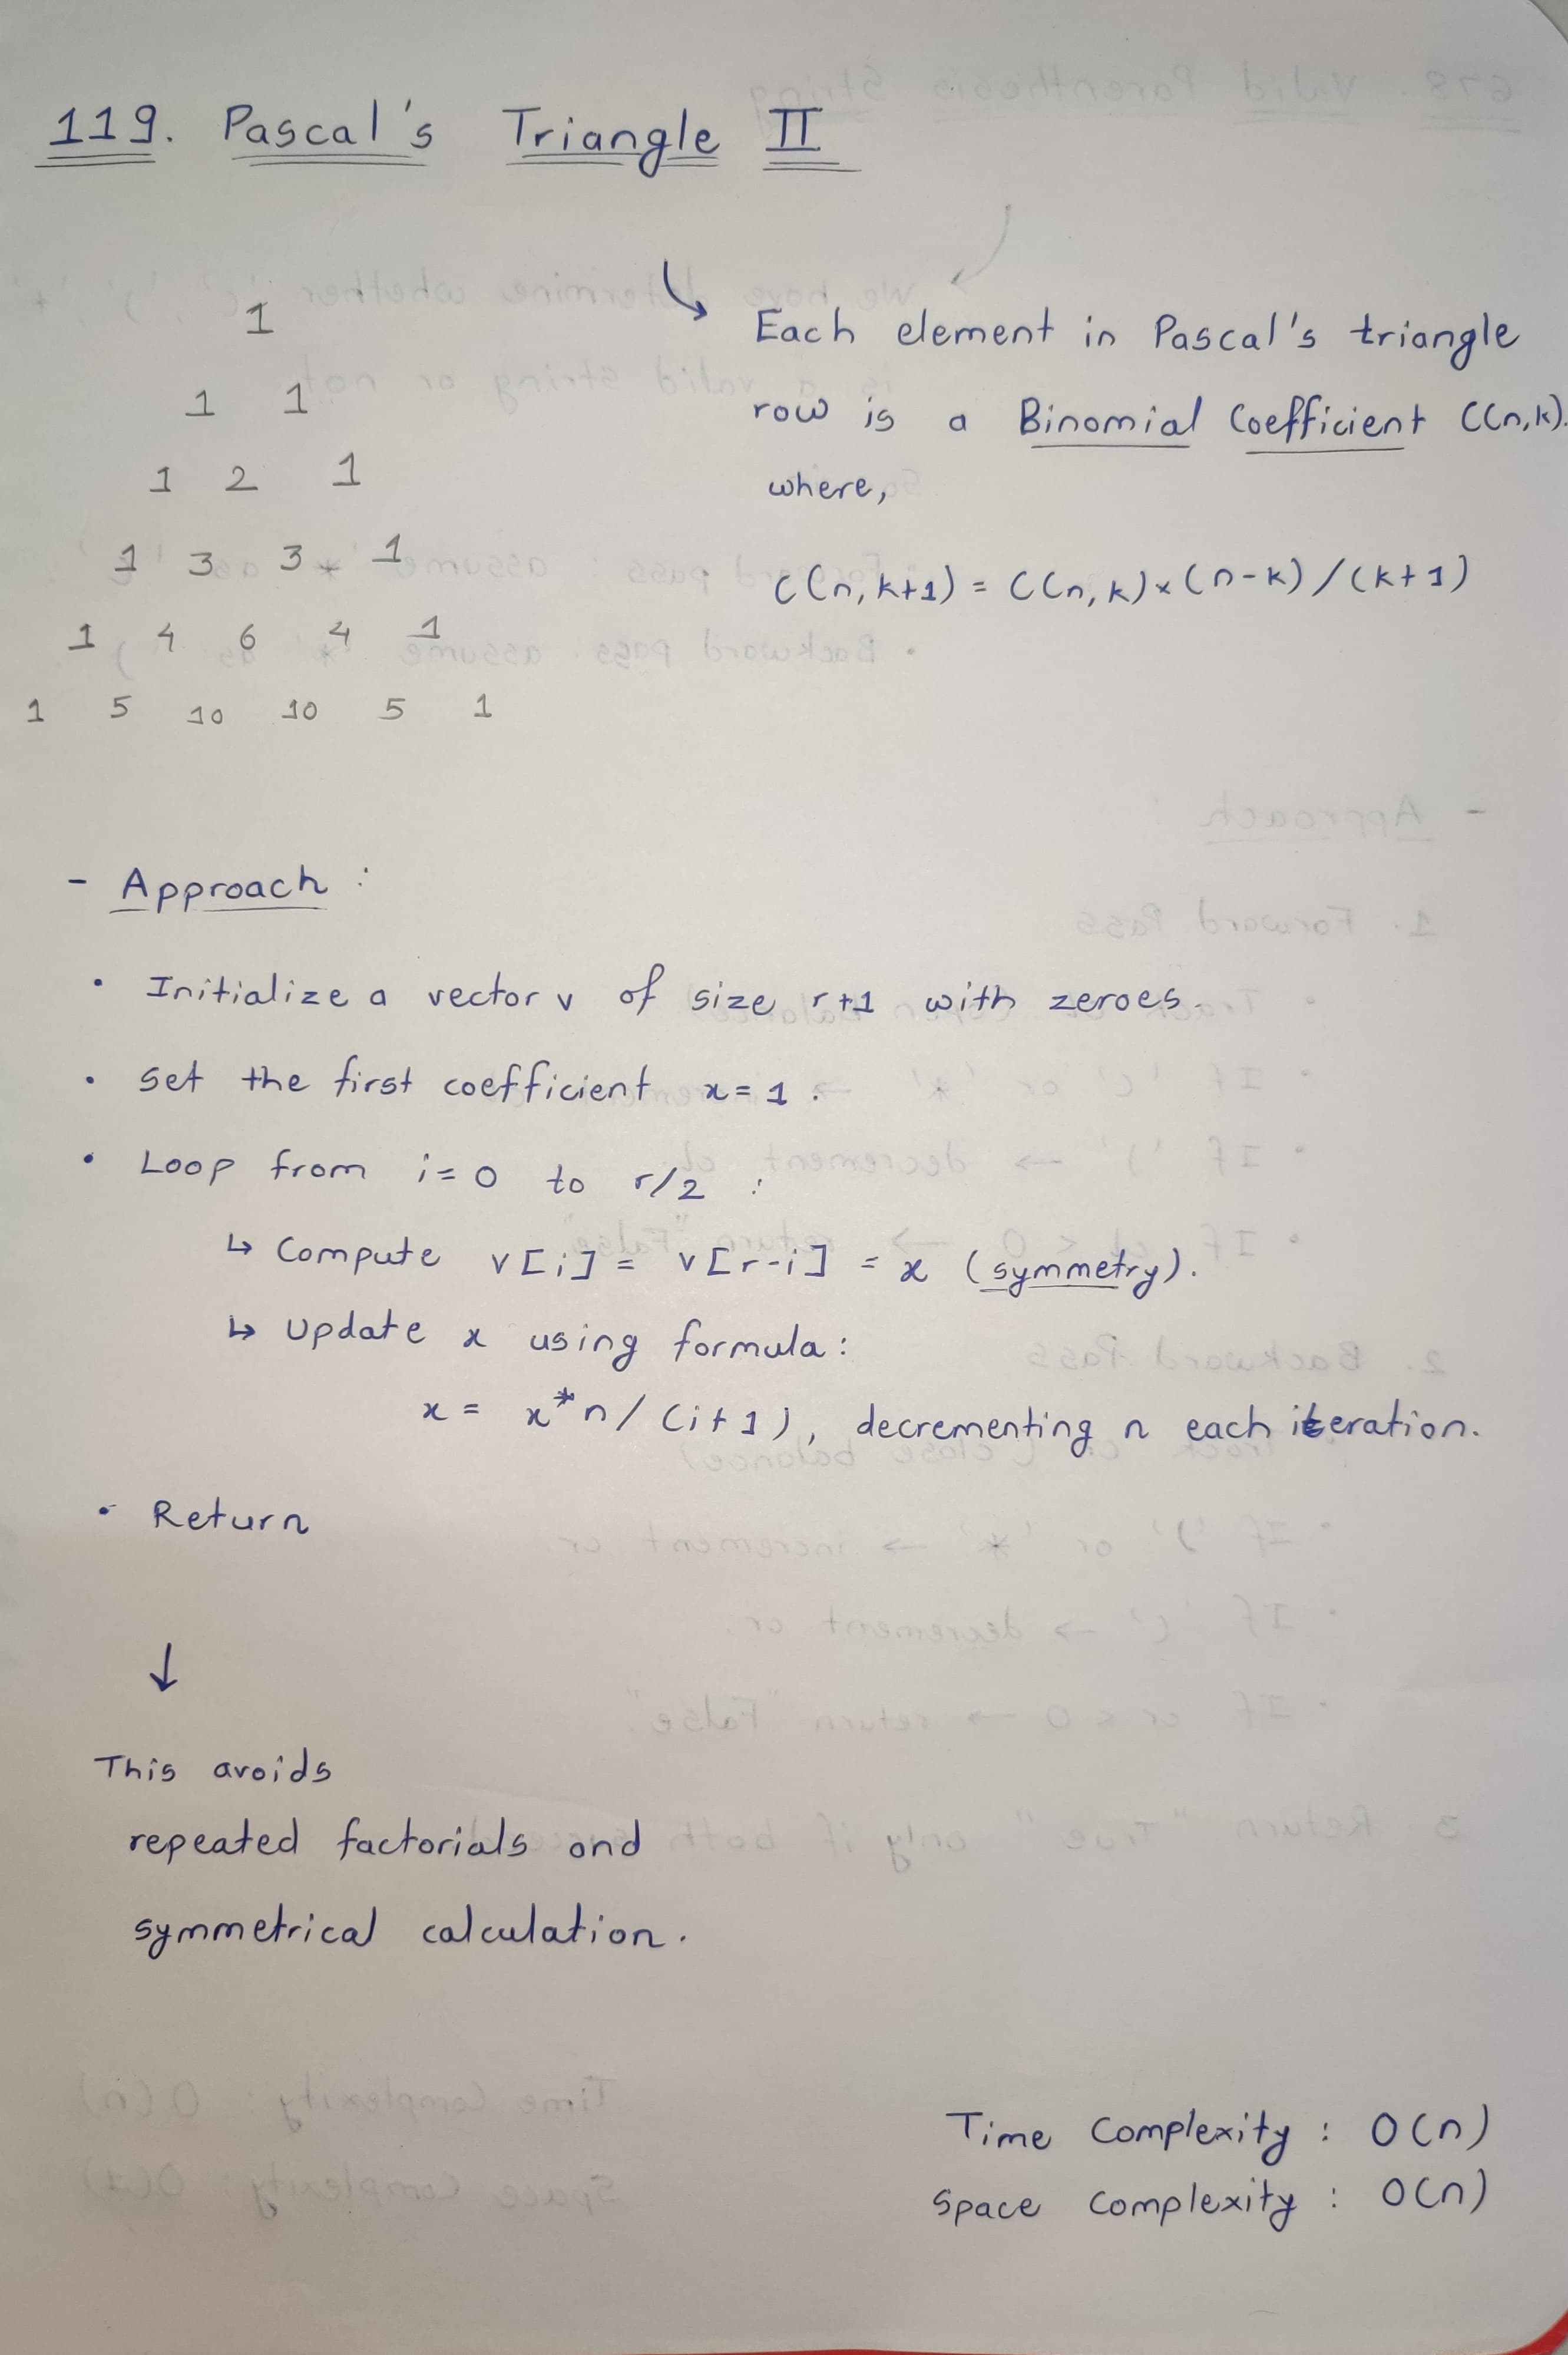 119. Pascal's Triangle II
1
1 1
1 2 1
1 3 3 1
1 4 6 4 1
1 5 10 10 5 1
↳ Each element in Pascal's triangle
row is a Binomial Coefficient C(n,k).
where,
C(n, k+1) = C(n, k) × (n-k) / (k+1)
- Approach :
• Initialize a vector v of size r+1 with zeroes.
• Set the first coefficient x = 1.
• Loop from i = 0 to r/2 :
↳ Compute v[i] = v[r-i] = x (symmetry).
↳ Update x using formula:
x = x*n / (i+1), decrementing n each iteration.
• Return
↓
This avoids
repeated factorials and
symmetrical calculation.
Time Complexity : O(n)
Space Complexity : O(n)